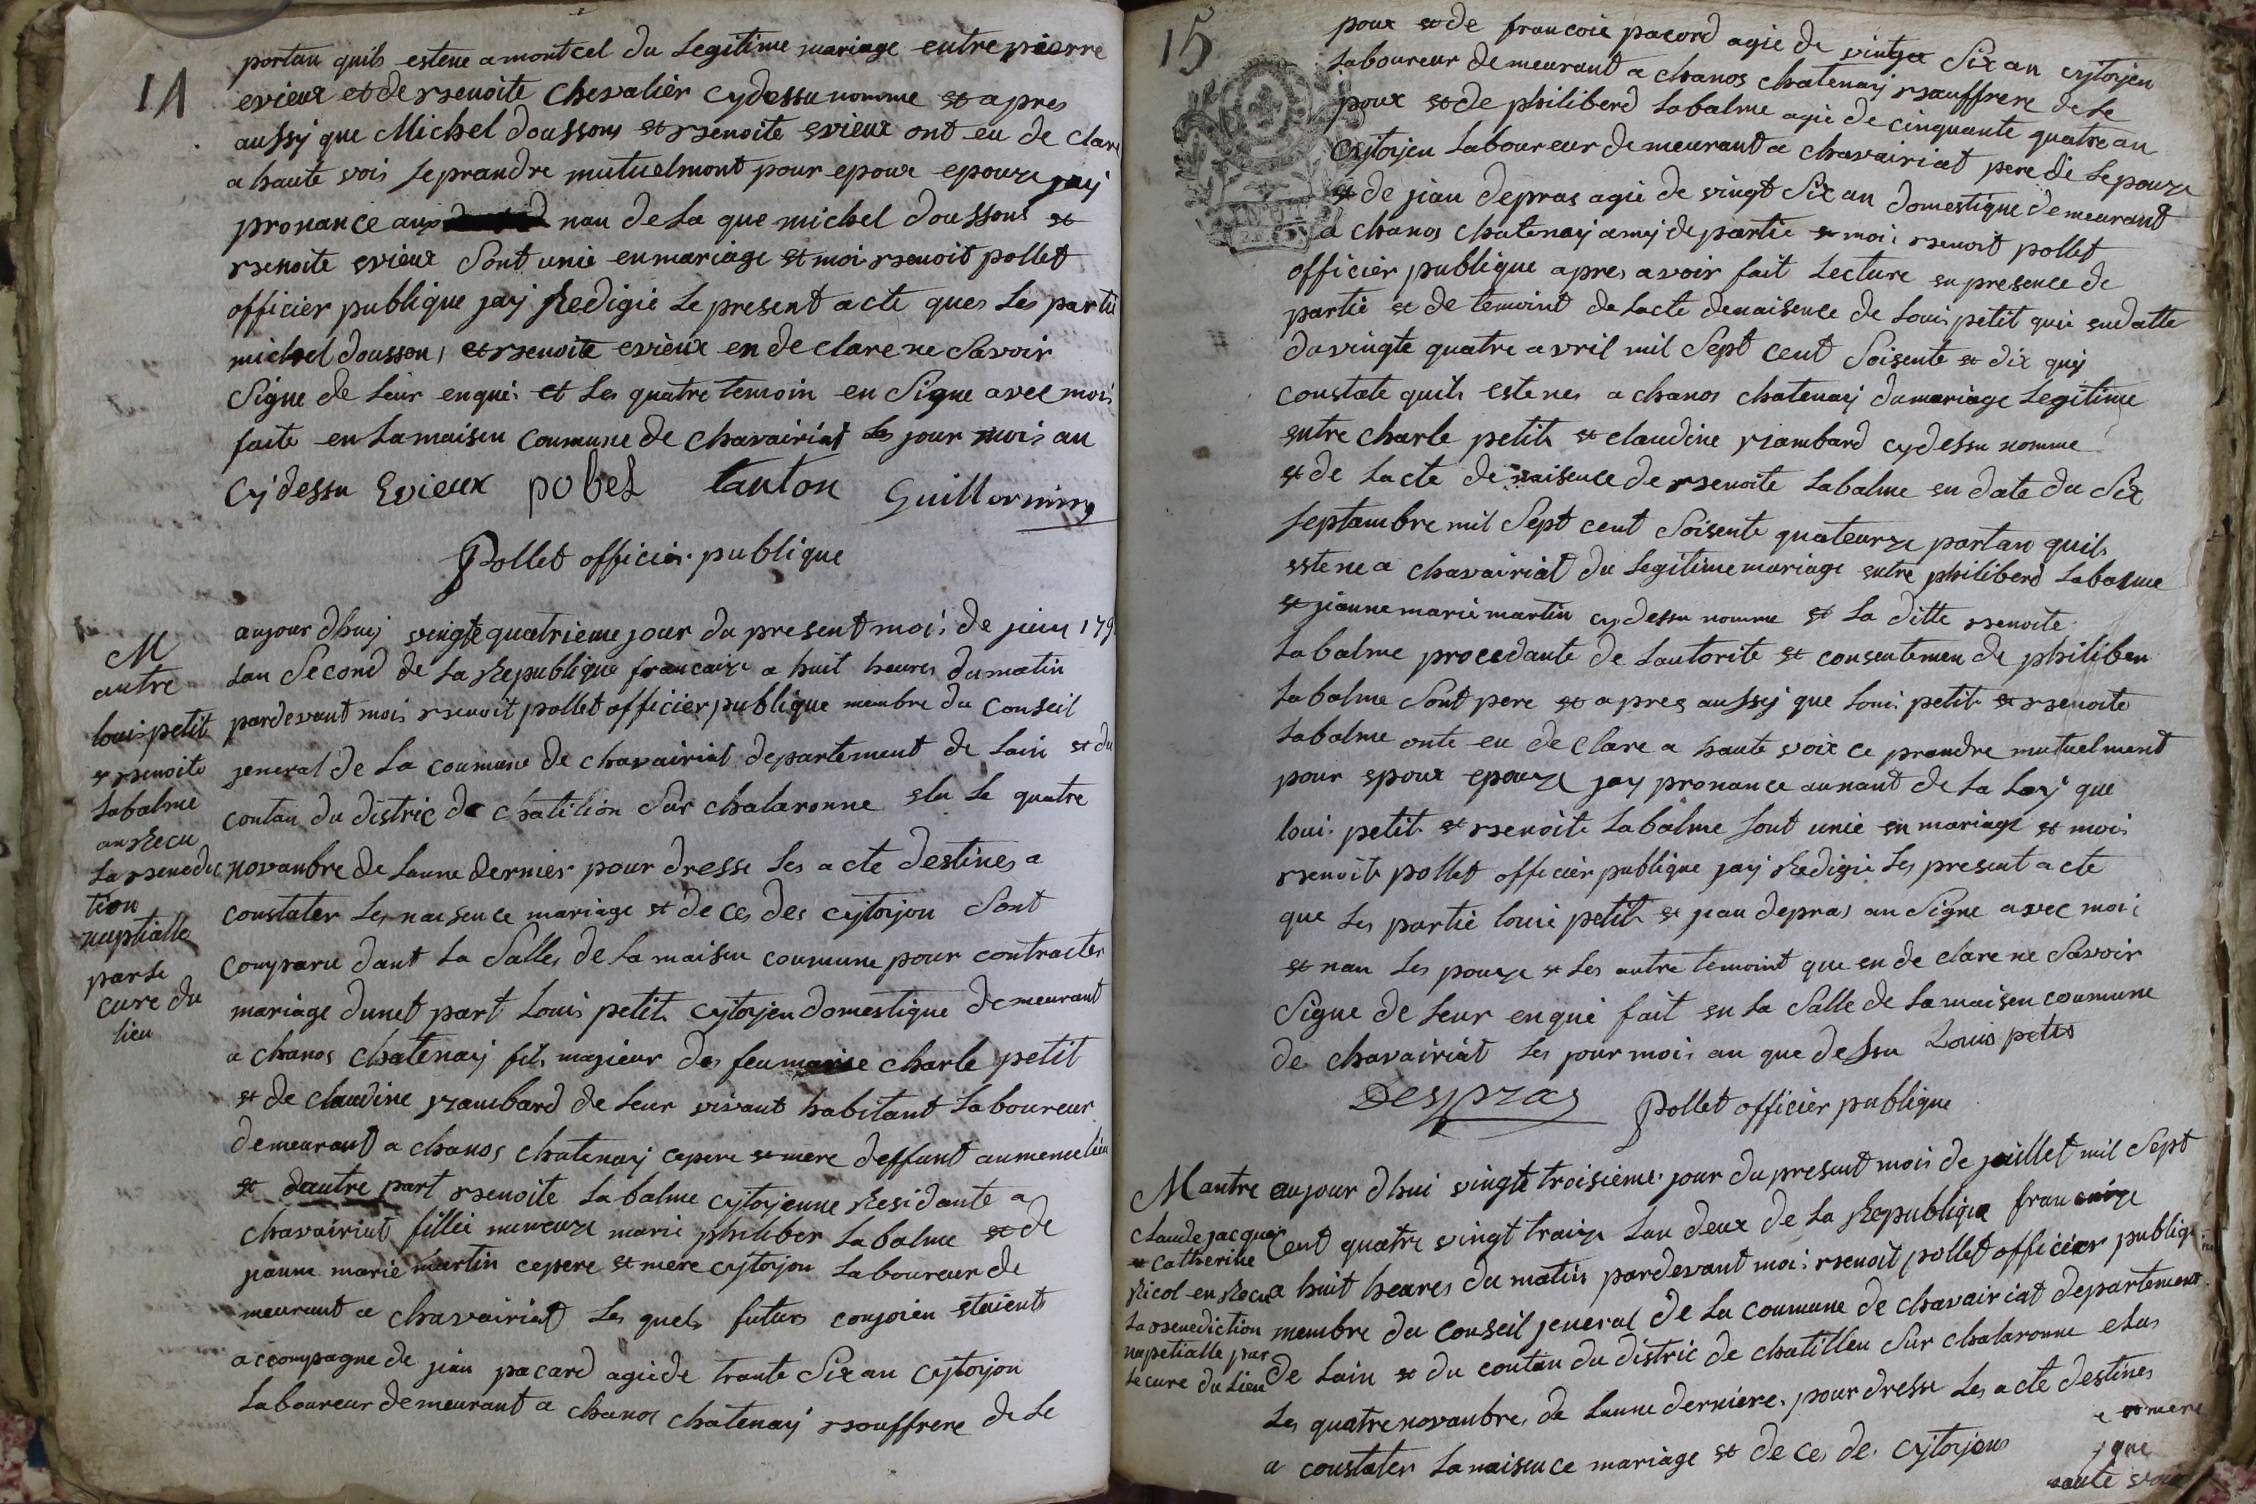 14
portan quils estene a montcel du Legitime mariage entre pierre
evieux et de rsenoite Chevalier cydessu nomme et apres
aussy que Michel doussons et rsenoite evieux ont eu de clare
a haute vois se prandre mutuelmont pour epoux epouze jay
pronance aux nau de La que michel doussons et
rsenoite evieux Sont unie en mariage et moi rsenoit pollet
officier publique jay Redigié Le present acte ques Les partie
michel dousson, et rsenoite evieux en de clare ne Savoir
Signe de Leur enqui et Les quatre temoin en Signe avec moi
faite en La maisen coumune de chavairiat Les jour mois au
Cydessu Evieux pobel tanton Guillermin
Pollet officier publique
M
autre
louis petit
et rsenoite
Labalme
an Recu
La rsenedic
tion
nuptialle
par Le
cure du
lieu
aujour dhuy vingte quatrieme jour du present moi de juin 179
Lan Second de La Republique francaize a huit heures du matin
pardevant moi rsenoit pollet officier publique membre du Conseil
jeneral de La coumune de chavairiat departement de Lain et du
contan du distric de chatilion Sur chalaronne elu Le quatre
novanbre de Lanne dernier pour dresse Les acte destines a
constater Les naisence mariage et de ces des cytoyon Sont
comparu dant La Salles de La maisen coumune pour contracter
mariage dunet part Louis petit cytoyen domestique demeurant
a chanos chatenay fils majieur des feu marie charle petit
et de claudine rambard de Leur vivant habitant Laboureur
demeurant a chanos chatenay cepere et mere deffunt au meme lieu
et dautre part rsenoite Labalme cytoyenne Residante a
chavairiat fillie mineuze marie philiber Labalme et de
jeanne marie martin cepere et mere cytoyon Laboureur de
meurant a chavairiat Les quels futurs conjoien etaients
accompagne de jean pacard agié de trante Six an cytoyon
Laboureur demeurant a chanos chatenay rsouffrere de Le
15
poux et de francois pacord agie de vingt Six an cytoyen
Laboureur demeurant a chanos chatenay rsauffrere de Le
poux et de philiberd Labalme agie de cinquante quatre an
Cytoyen Laboureur demeurant a chavairiat pere de Lepouze
et de jean depras agie de vingt Six an domestique demeurant
a chanos chatenay amy de partie et moi rsenoit pollet
officier publique apres avoir fait Lecture en presence de
partie et de temoint de Lacte denaisence de Louis petit qui endatte
du vingte quatre avril mil Sept cent Soisente et dix quy
constate quils estenes a chanos chatenay du mariage Legitime
entre charle petit et claudine rambard cydessu nomme
et de Lacte de naisence de rsenoite Labalme en date du Six
Septambre mil Sept cent Soisente quateurze portan quils
estene a chavairiat du Legitime mariage entre philiberd Labalme
et jeanne marie martin cydessu nomme et La ditte rsenoite
Labalme procedante de Lautorite et consentemen de philiber
Labalme Sont pere et apres aussy que Loui petit et rsenoite
Labalme onte eu declare a haute voix ce prandre mutuelment
pour epoux epouze jay pronance aunant de La Loy que
loui petit et rsenoite Labalme Sont unie en mariage et moi
rsenoit pollet officier publique jay Redigié Les present acte
que Les partie louis petit et jean depras an Signe avec moi
et nan Les pouze et Les autre temoint que en de clare ne Savoir
Signe de Leur enqui fait en La Salle de La maisen coumune
de chavairiat Les jour moi au que dessu Louis petit
Despras Pollet officier publique
M autre
Claude jacquer
et catherine
Ricol en Recu
La rsenediction
nupetialle par
Le cure du Lieu
aujour dhui vingte troisieme jour du present mois de juillet mil Sept
Cent quatre vingt traize Lan deux de La Republique francaize
a huit heures du matin pardevant moi rsenoit pollet officier publique
membre du Conseil jeneral de La coumune de chavairiat departement
de Lain et du contan du distric de chatillon Sur chalaronne elus
Les quatre novanbre de Lanne derniere pour dresse Les acte destines
a constater La naisence mariage et de ces de cytoyens
e et mere
y que
haute voix